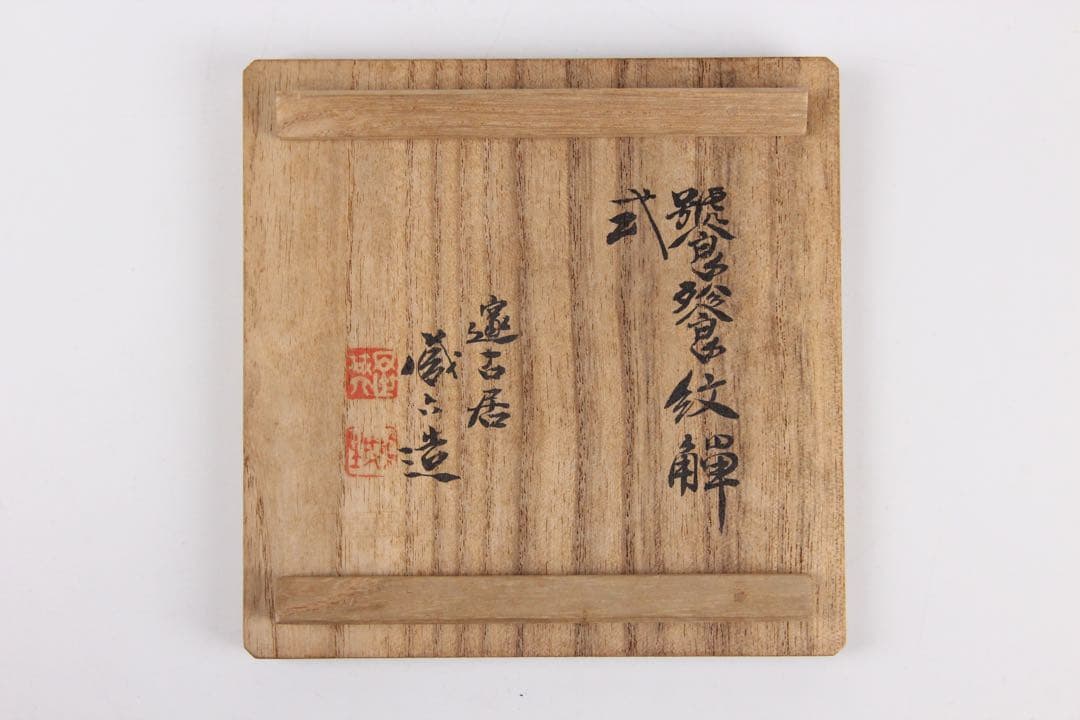 饕餮紋觶
式
邃古居
蔵六造